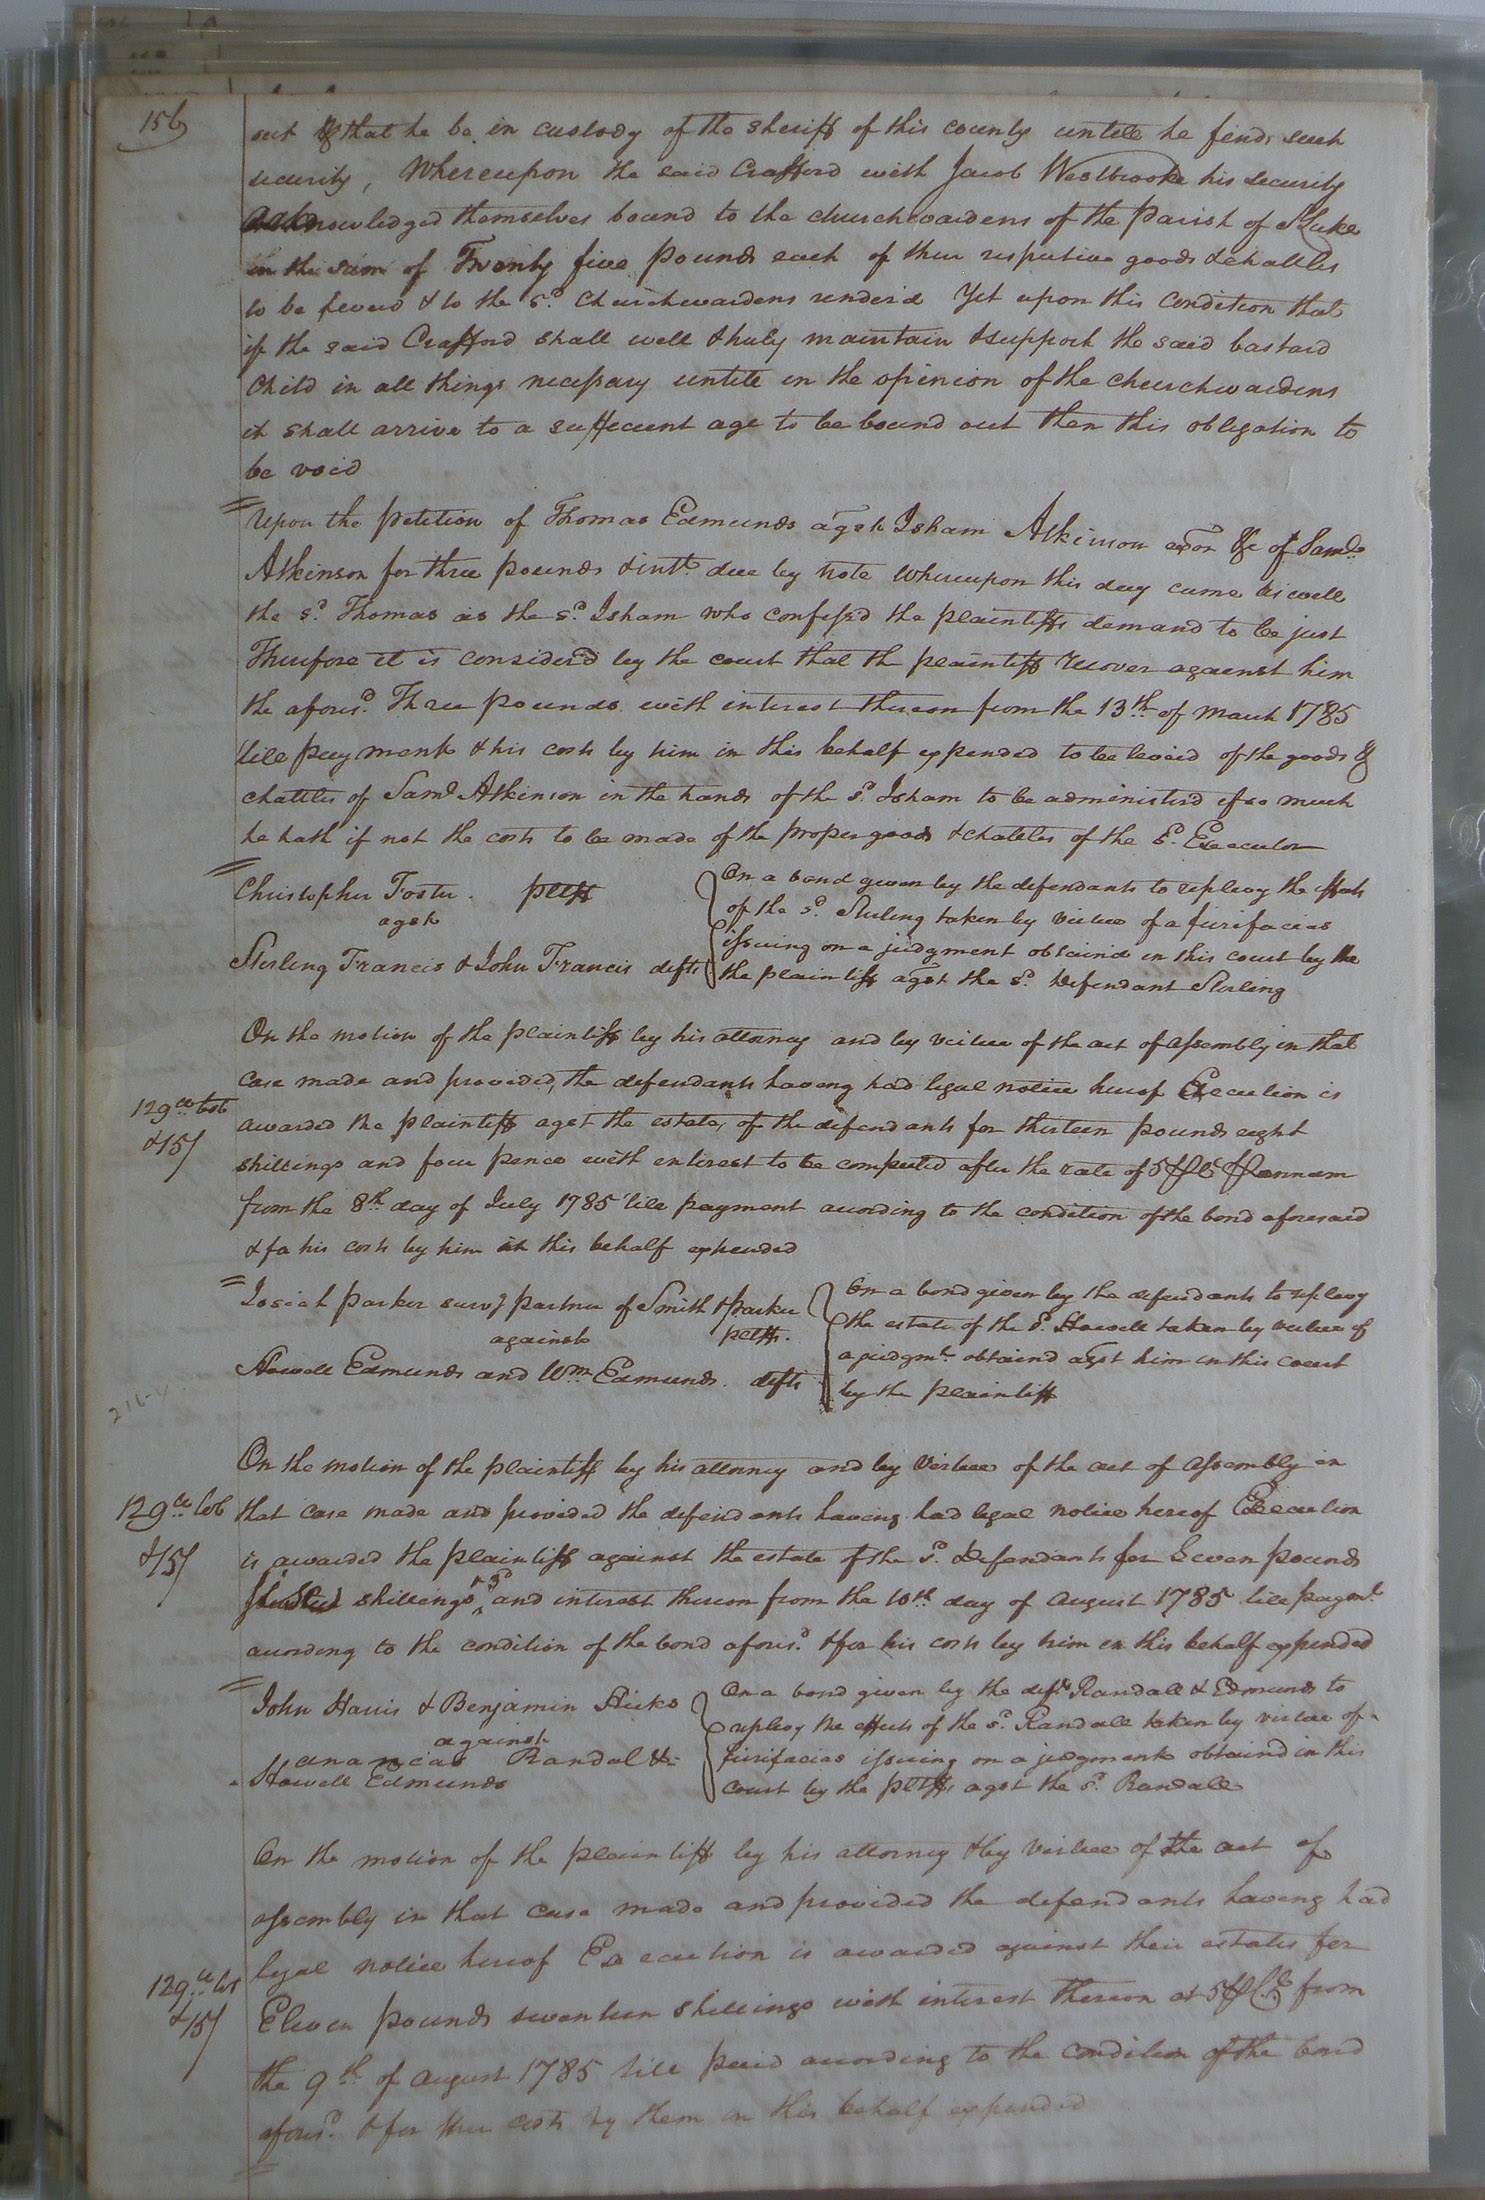 156
out & that he be in custody of the Sheriff of this county untill he finds such
security, Whereupon the said Crafford with Jacob Westbrooke his security
acknowledged themselves bound to the churchwardens of the Parish of St Luke
in the sum of Twenty five pounds each of their respective goods & chattles
to be levied & to the sd. Churchwardens renderd Yet upon this Condition that
if the said Crafford shall well & truly maintain & support the said bastard
Child in all things necessary untill in the opinion of the churchwardens
it shall arrive to a sufficient age to be bound out then this obligation to
be void
Upon the petition of Thomas Edmunds agst Isham Atkinson exor &c of Saml.
Atkinson for three pounds & intt. due by note Whereupon this day came as well
the sd. Thomas as the sd. Isham who confessd the plaintiffs demand to be just
Therefore it is considerd by the court that the plaintiff recover against him
the aforesd. Three pounds with interest thereon from the 13th. of March 1785
till payment & his costs by him in this behalf expended to be levied of the goods &
chattles of Saml Atkinson in the hands of the sd. Isham to be administerd if so much
he hath if not the costs to be made of the proper goods & chattles of the sd. Executor
Christopher Foster. pltff
agst
Sterling Francis & John Francis defts
On a bond given by the defendants to replevy the effects
of the sd. Sterling taken by virtue of a furifacias
issuing on a judgment obtaind in this court by the
the plaintiff agst the sd. Defendant Sterling
On the motion of the plaintiff by his attorney and by virtue of the act of assembly in that
case made and provided, the defendants having had legal notice hereof Execution is
129 Tob
awarded the plaintiff agst the estate, of the defendants for thirteen pounds eight
& 15/
shillings and four pence with interest to be computed after the rate of 5 P Ct P annum
from the 8th. day of July 1785 till payment according to the condition of the bond aforesaid
& fo his costs by him in this behalf expended
Josiah Parker survg partner of Smith & Parker
against pltff.
Howell Edmunds and Wm Edmunds. defts
On a bond given by the defendants to replevy
the estate of the sd. Howell taken by virtue of
a judgmt. obtaind agst him in this court
by the plaintiff
216
On the motion of the plaintiff by his attorney and by Virtue of the act of assembly in
129 Tob
that case made and provided the defendants having had legal notice hereof Execution
& 15/
is awarded the plaintiff against the estate of the sd. Defendants for Seven pounds
shillings and interest thereon from the 10th day of August 1785 till paymt.
according to the condition of the bond aforesd. & for his costs by him in this behalf expended
John Harris & Benjamin Hicks
against
Ananias Randal &
Howell Edmunds
On a bond given by the defts Randall & Edmunds to
replevy the effects of the sd. Randall taken by virtue of a
furifacias issuing on a judgment obtaind in this
Court by the pltffs agst the sd. Randall
On the motion of the plaintiff by his attorney & by Virtue of the act of
assembly in that case made and provided the defendants having had
legal notice hereof Execution is awarded against their estates for
129 Tob
& 15/
Eleven pounds seventeen shillings with interest thereon at 5 P Ct from
the 9th. of August 1785 till paid according to the condition of the bond
aforesd. & for their costs by them in this behalf expended